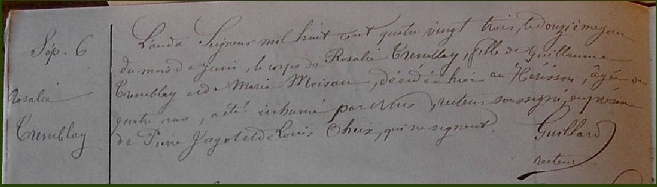 Sép. 6
Rosalie
Tremblay
L'an du Seigneur mil huit cent quatre vingt trois, le douzième jour
du mois de Juin, le corps de Rosalie Tremblay, fille de Guillaume
Tremblay et de Marie Moisan, décédée hier au Hérisson, âgée de
quatre ans, a été inhumé par Nous, recteur soussigné, en présence
de Pierre Jagot et de Louis Cheix, qui ne signent.
Guillard
recteur